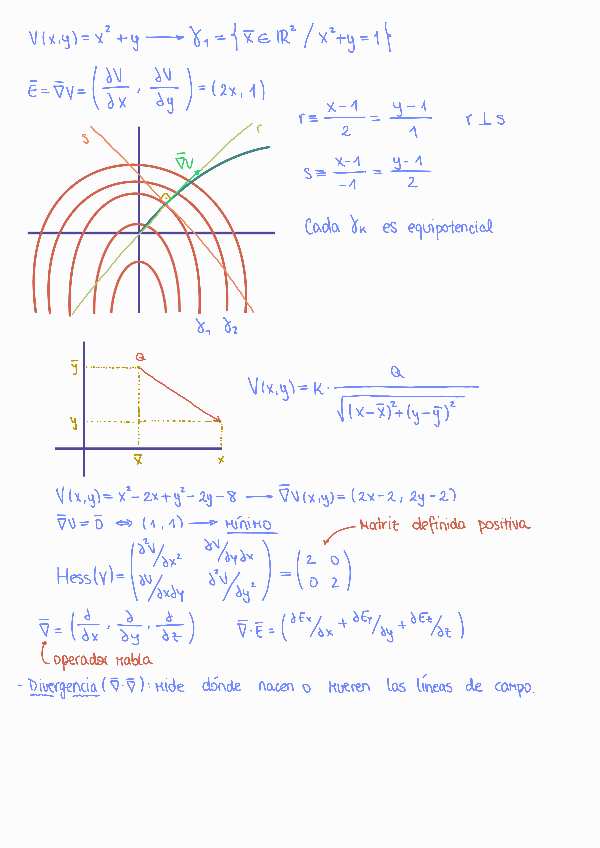 V(x,y) = x² + y ⟶ γ₁ = { x̄ ∈ ℝ² / x² + y = 1 }
Ē = ∇̄V = ( ∂V/∂x , ∂V/∂y ) = (2x, 1)
r ≡ (x-1)/2 = (y-1)/1   r ⊥ s
s ≡ (x-1)/-1 = (y-1)/2
s
r
∇̄V
Cada γₖ es equipotencial
γ₁ γ₂
ȳ
Q
y
x̄
x
V(x,y) = K · Q / √((x-x̄)² + (y-ȳ)²)
V(x,y) = x² - 2x + y² - 2y - 8 ⟶ ∇̄V(x,y) = (2x-2, 2y-2)
∇̄V = 0̄ ⇔ (1,1) ⟶ MÍNIMO
Matriz definida positiva
Hess(V) = ( ∂²V/∂x² ∂V/∂y∂x ; ∂V/∂x∂y ∂²V/∂y² ) = ( 2 0 ; 0 2 )
∇̄ = ( ∂/∂x , ∂/∂y , ∂/∂z )   ∇̄·Ē = ( ∂Ex/∂x + ∂Ey/∂y + ∂Ez/∂z )
operador nabla
- Divergencia (∇̄·∇̄): Mide dónde nacen o mueren las líneas de campo.